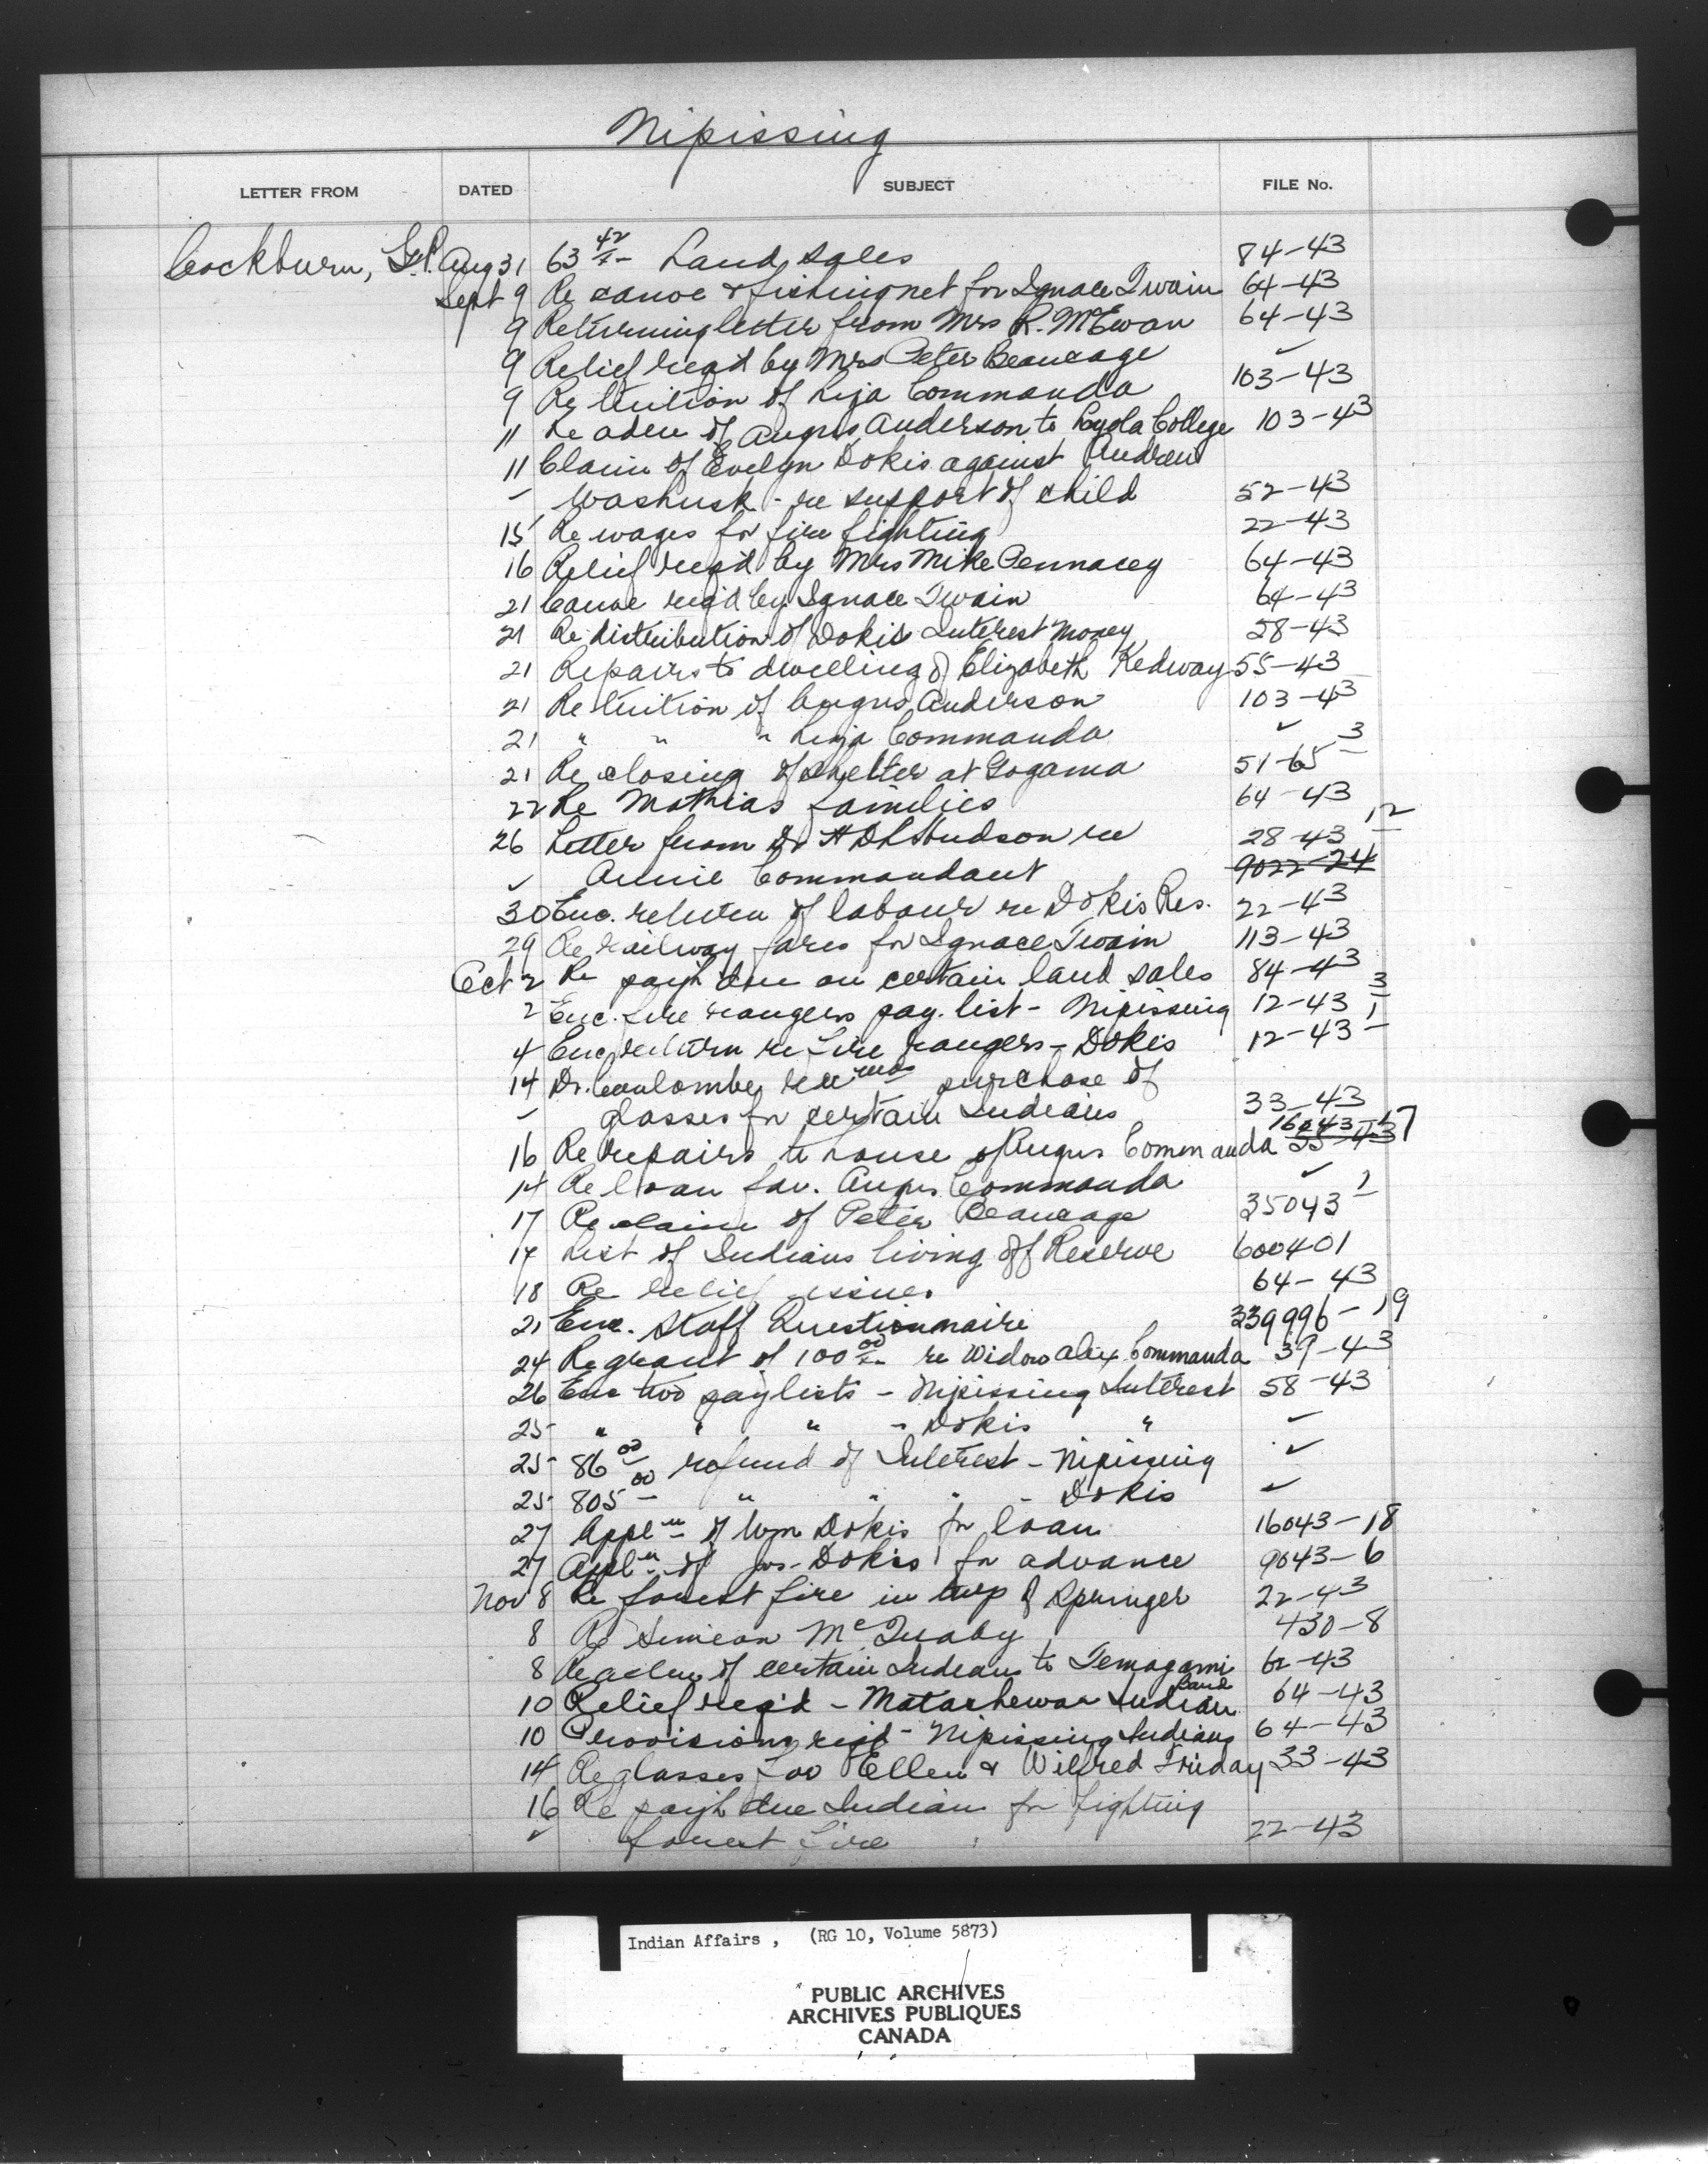 Nipissing
LETTER FROM DATED SUBJECT FILE No.
Cockburn, G.P. Aug 31 63 42 Land sales 84-43
Sept 9 Re canoe & fishing net for Ignace Twain 64-43
9 Returning letter from Mrs R. McEwan 64-43
9 Relief req'd by Mrs Peter Beaucage ✓
9 Re tuition of Liza Commanda 103-43
11 Re adm of Angus Anderson to Loyola College 103-43
11 Claim of Evelyn Dokis against Andrew
" Washusk - re support of child 52-43
15 Re wages for fire fighting 22-43
16 Relief req'd by Mrs Mike Pennacey 64-43
21 Canoe req'd by Ignace Twain 64-43
21 Re distribution of Dokis Interest Money 58-43
21 Repairs to dwelling of Elizabeth Kedway 55-43
21 Re tuition of Angus Anderson 103-43
21 " " " Liza Commanda ✓
21 Re closing of shelter at Gogama 51-65 3
22 Re Mathias families 64-43
26 Letter from Dr H D L Hudson re 28-43 12
✓ Annie Commandant 9022-24
30 Enc. return of labour re Dokis Res. 22-43
29 Re railway fares for Ignace Twain 113-43
Oct 2 Re paym't due on certain land sales 84-43
2 Enc. fire rangers pay. list - Nipissing 12-43 3
4 Enc return re fire rangers - Dokis 12-43 1
14 Dr. Coulombe recmds purchase of
" glasses for certain Indians 33-43
16043-17
16 Re repairs to house of Angus Commanda 55-43
14 Re loan fav. Angus Commanda ✓
17 Re claim of Peter Beaucage 35043 1
17 List of Indians living off Reserve 600401
18 Re relief issues 64-43
21 Enc. Staff Questionnaire 339996-19
24 Re grant of 100 00 re Widow Alex Commanda 39-43
26 Enc two paylists - Nipissing Interest 58-43
25 " " " - Dokis " ✓
25 86 00 refund of Interest - Nipissing ✓
25 805 00 " " " - Dokis ✓
27 Appln of Wm Dokis for loan 16043-18
27 Appln of Jos. Dokis for advance 9043-6
Nov 8 Re forest fire in twp of Springer 22-43
8 Re Simeon McQuaby 430-8
8 Re adm of certain Indians to Temagami Band 62-43
10 Relief req'd - Matachewan Indian 64-43
10 Provisions req'd - Nipissing Indians 64-43
14 Re glasses for Ellen & Wilfred Friday 33-43
16 Re paym't due Indian for fighting
✓ forest fire 22-43
Indian Affairs , (RG 10, Volume 5873)
PUBLIC ARCHIVES
ARCHIVES PUBLIQUES
CANADA